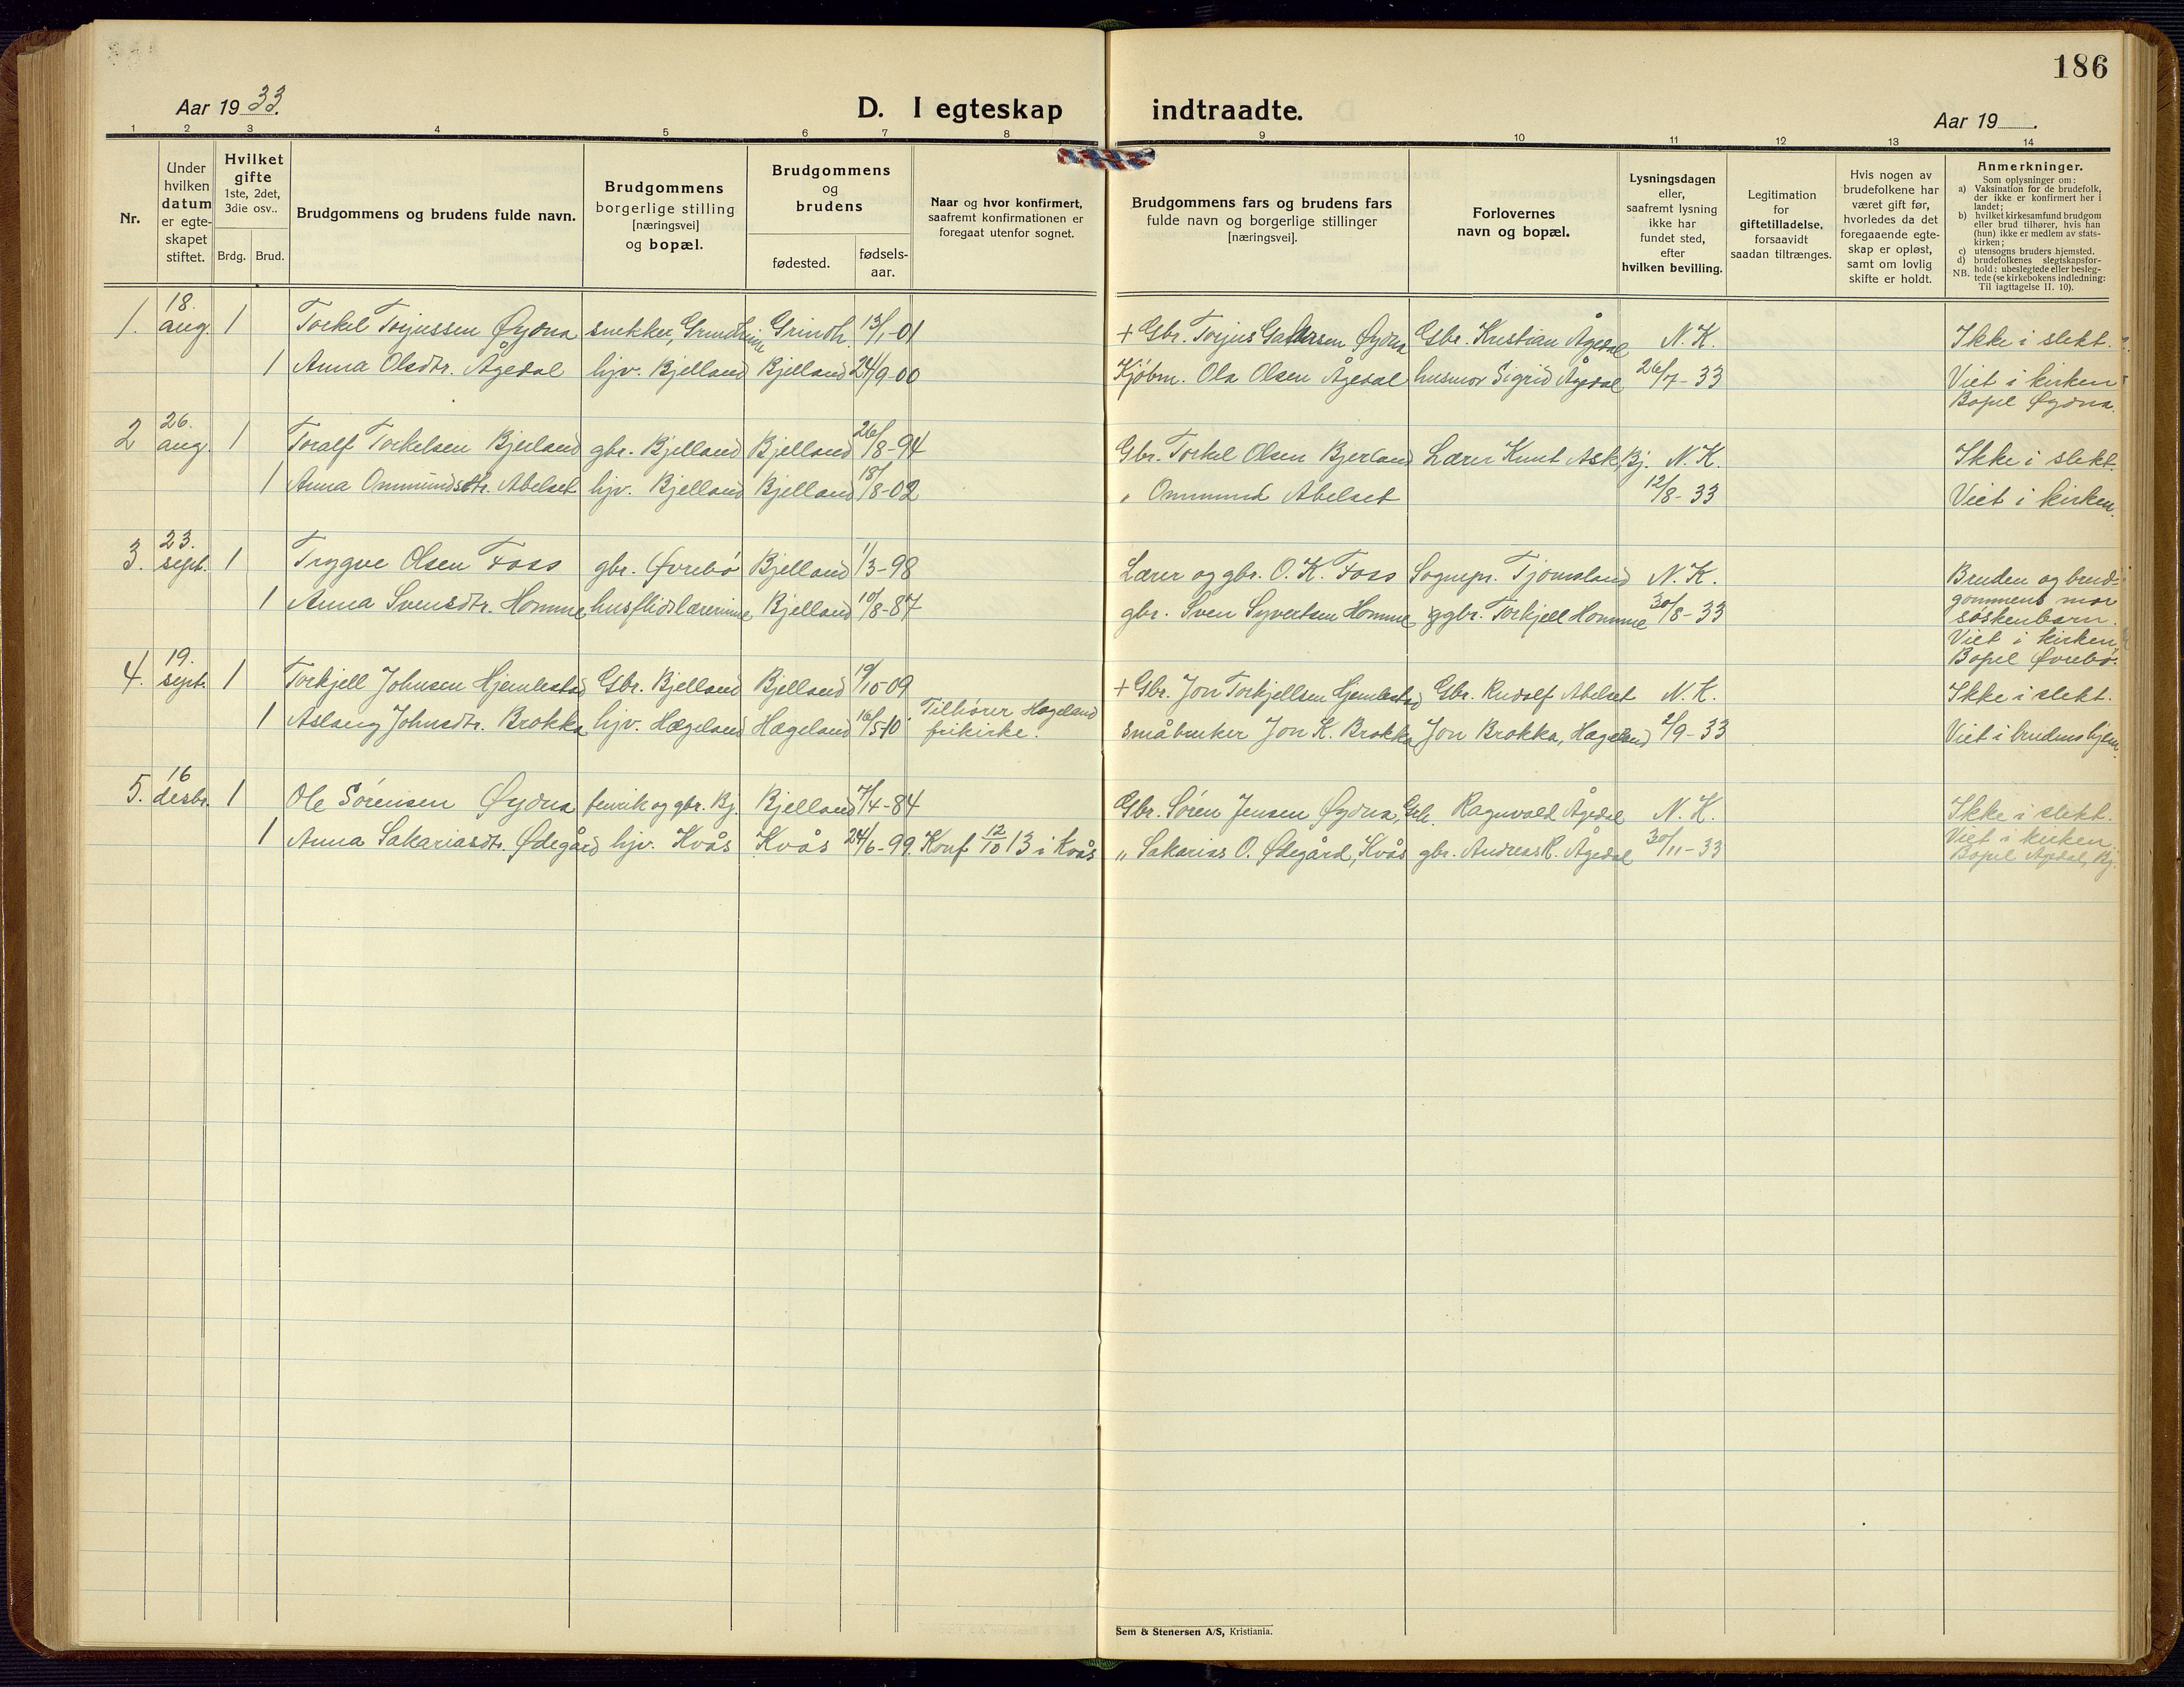 186
Aar 1933.
D. I egteskap indtraadte.
Aar 19
1 2 3 4 5 6 7 8 9 10 11 12 13 14
Nr.
Under
hvilken
datum
er egte-
skapet
stiftet.
Hvilket
gifte
1ste, 2det,
3die osv..
Brdg. Brud.
Brudgommens og brudens fulde navn.
Brudgommens
borgerlige stilling
[næringsvei]
og bopæl.
Brudgommens
og
brudens
fødested.
fødsels-
aar.
Naar og hvor konfirmert,
saafremt konfirmationen er
foregaat utenfor sognet.
Brudgommens fars og brudens fars
fulde navn og borgerlige stillinger
[næringsvei].
Forlovernes
navn og bopæl.
Lysningsdagen
eller,
saafremt lysning
ikke har
fundet sted,
efter
hvilken bevilling.
Legitimation
for
giftetilladelse,
forsaavidt
saadan tiltrænges.
Hvis nogen av
brudefolkene har
været gift før,
hvorledes da det
foregaaende egte-
skap er opløst,
samt om lovlig
skifte er holdt.
Anmerkninger.
Som oplysninger om:
a) Vaksination for de brudefolk,
der ikke er konfirmert her i
landet;
b) hvilket kirkesamfund brudgom
eller brud tilhører, hvis han
(hun) ikke er medlem av stats-
kirken;
c) utensogns bruders hjemsted.
d) brudefolkenes slegtskapsfor-
hold: ubeslegtede eller besleg-
NB. tede (se kirkebokens indledning:
Til iagttagelse II. 10).
1. 18. aug. 1 Torkel Torjussen Øydna snekker, Grindheim Grindh. 13/1-01 + Gbr. Torjus Øydna Gbr. Kristian Ågedal N. K. Ikke i slekt.
1 Anna Olsdtr. Ågedal hjv. Bjelland Bjelland 24/9-00 Kjøbm. Ola Olsen Ågedal husmor Sigrid Ågedal 26/7-33 Viet i kirken
Bopel Øydna.
2 26. aug. 1 Toralf Torkelsen Bjerland gbr. Bjelland Bjelland 26/8-94 Gbr. Torkel Olsen Bjerland Lærer Knut Ask, Bj. N. K. Ikke i slekt
1 Anna Ommundsdtr. Abelset hjv. Bjelland Bjelland 18/8-02 " Ommund Abelset 12/8-33 Viet i kirken.
3. 23. sept. 1 Trygve Olsen Foss gbr. Øvrebø Bjelland 1/3-98 Lærer og gbr. O. K. Foss Sognepr. Tjomsland N. K. Bruden og brud-
gommens mor
1 Anna Svensdtr. Homme husflidslærerinne Bjelland 10/8-87 gbr. Sven Syvertsen Homme gbr. Torkjell Homme 30/8-33 søskenbarn.
Viet i kirken,
Bopel Øvrebø.
4. 19. sept. 1 Torkjell Johnsen Hjemlestad Gbr. Bjelland Bjelland 19/10-09 + Gbr. Jon Torkjellsen Hjemlestad Gbr. Rudolf Abelset N. K. Ikke i slekt.
1 Aslaug Johnsdtr. Brokka hjv. Hægeland Hægeland 16/5-10 Tilhører Hægeland
frikirke. Småbruker Jon K. Brokka Jon Brokka, Hægeland 2/9-33 Viet i brudens hjem.
5. 16 desbr. 1 Ole Sørensen Øydna fenrik og gbr. Bj. Bjelland 7/4-84 Gbr. Søren Jensen Øydna, Ragnvald Ågedal N. K. Ikke i slekt.
1 Anna Sakariasdtr. Ødegård hjv. Kvås Kvås 24/6-99. Konf 12/10 13 i Kvås " Sakarias O. Ødegård, Kvås gbr. Andreas R. Ågedal 30/11-33 Viet i kirken
Bopel Ågedal, Bj.
Sem & Stenersen A/S, Kristiania.